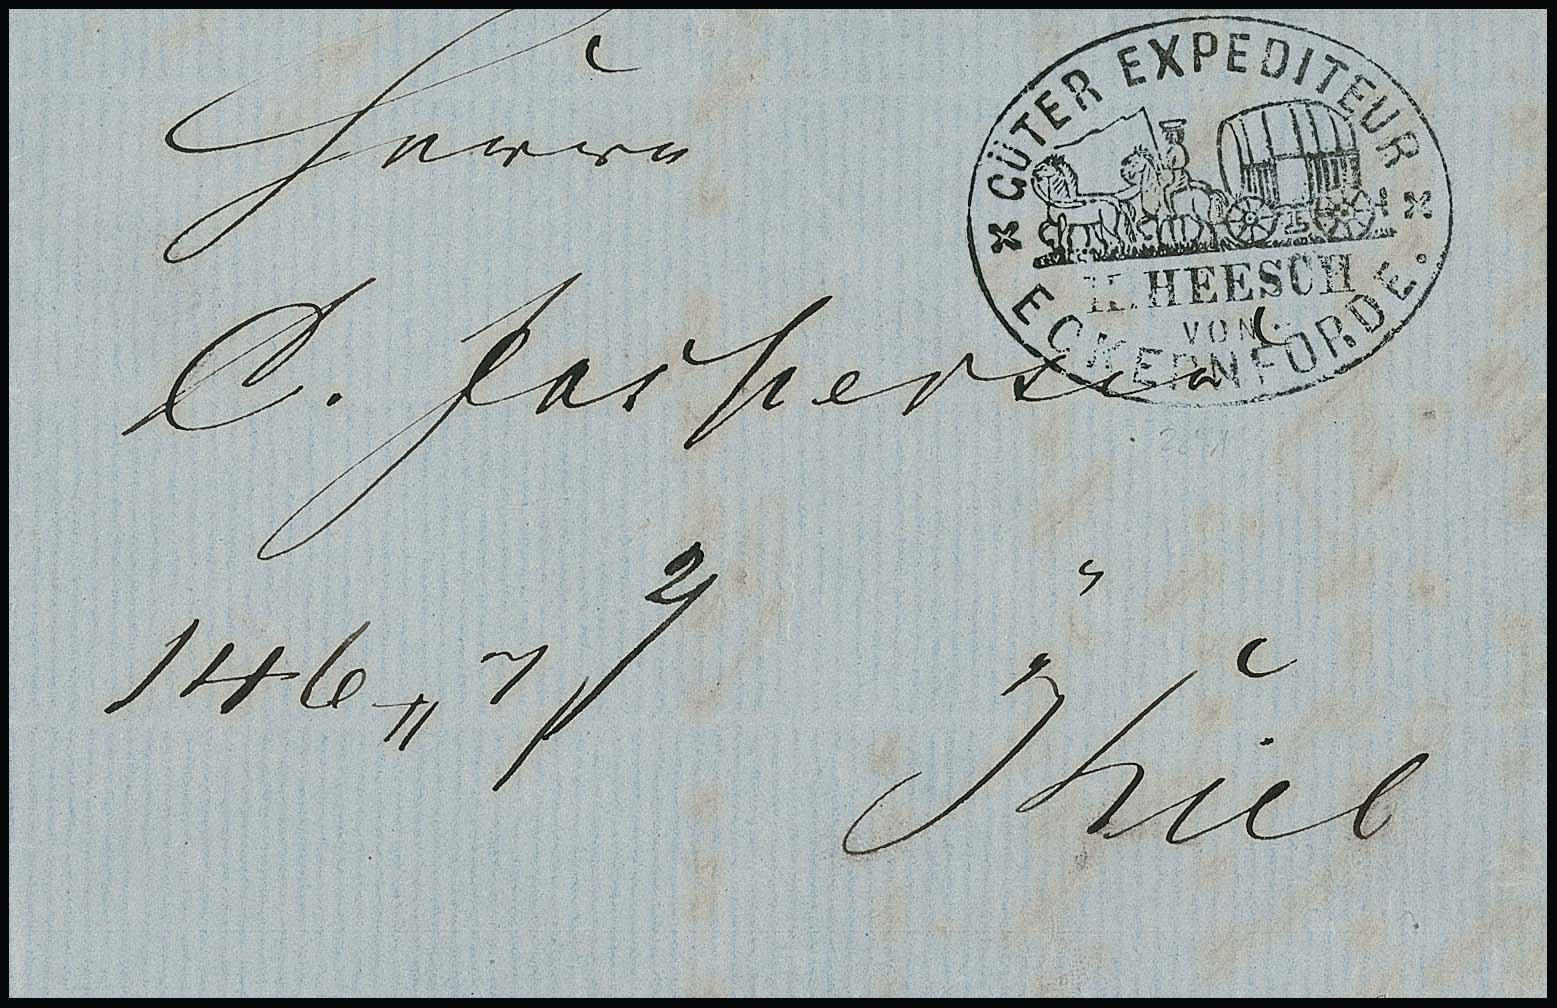 GÜTER EXPEDITEUR
H. HEESCH
VON
ECKERNFÖRDE.
Herrn
C. Jaspersen
146 „ 7/2
Kiel